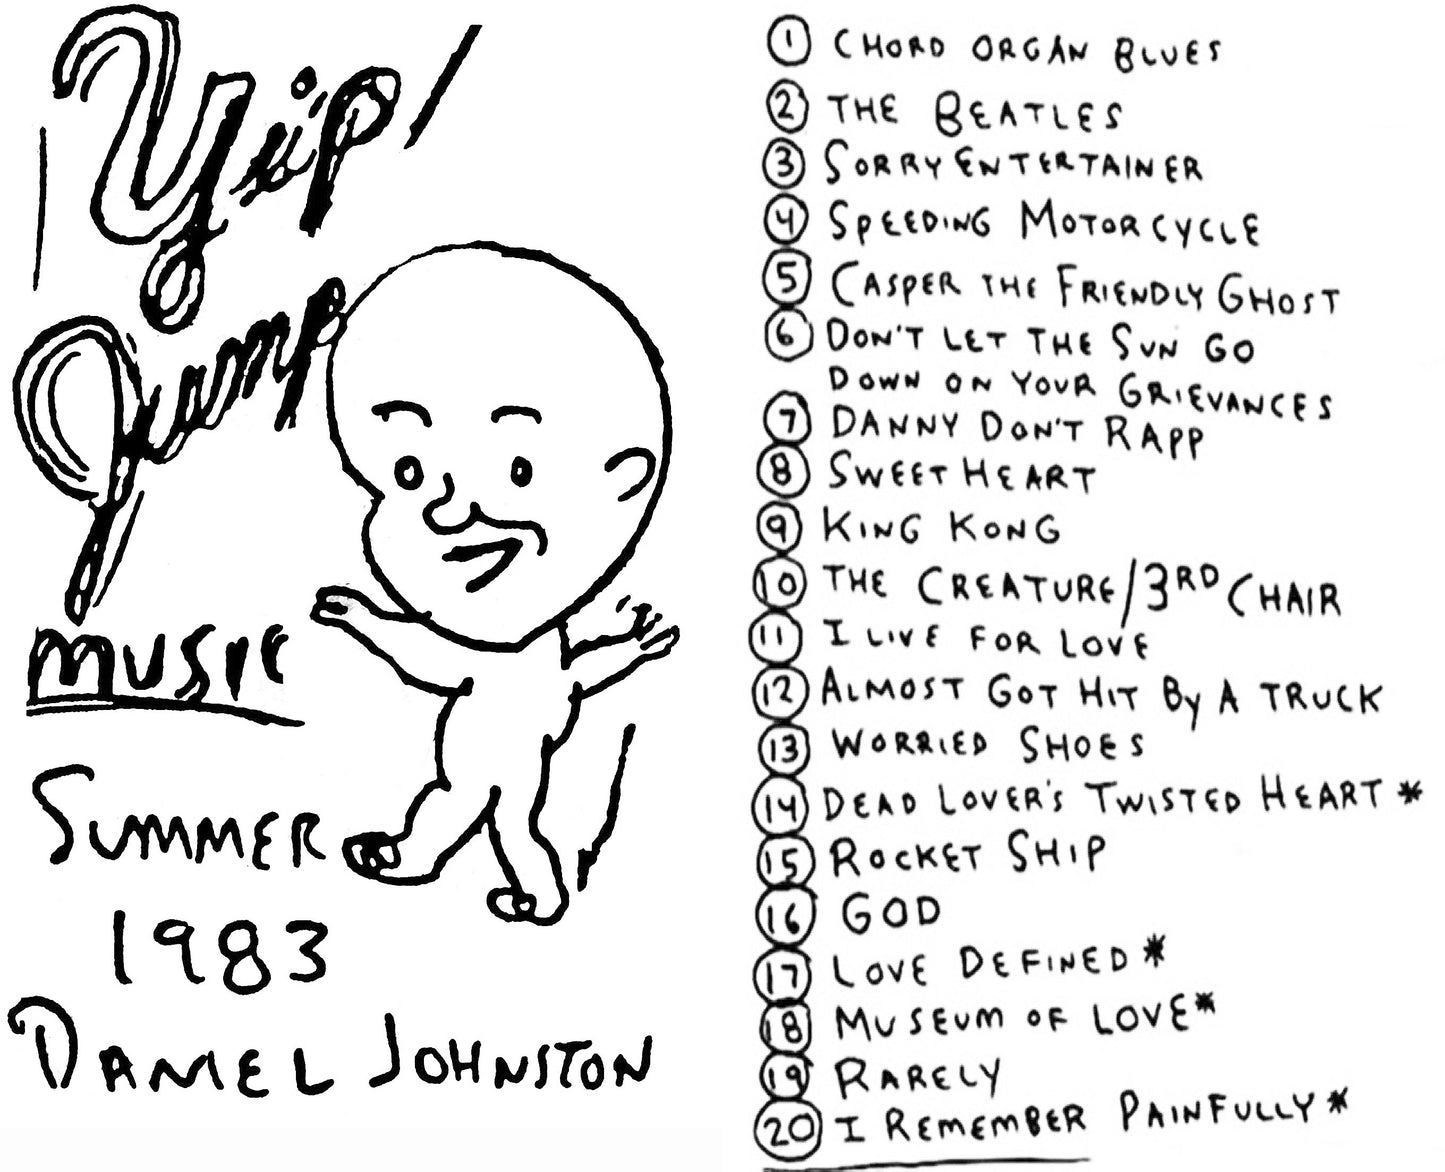 Yip!
Jump
MUSIC
SUMMER
1983
DANIEL JOHNSTON
1 CHORD ORGAN BLUES
2 THE BEATLES
3 SORRY ENTERTAINER
4 SPEEDING MOTORCYCLE
5 CASPER THE FRIENDLY GHOST
6 DON'T LET THE SUN GO
DOWN ON YOUR GRIEVANCES
7 DANNY DON'T RAPP
8 SWEET HEART
9 KING KONG
10 THE CREATURE/3RD CHAIR
11 I LIVE FOR LOVE
12 ALMOST GOT HIT By A TRUCK
13 WORRIED SHOES
14 DEAD LOVER'S TWISTED HEART *
15 ROCKET SHIP
16 GOD
17 LOVE DEFINED *
18 MUSEUM OF LOVE *
19 RARELY
20 I REMEMBER PAINFULLY *